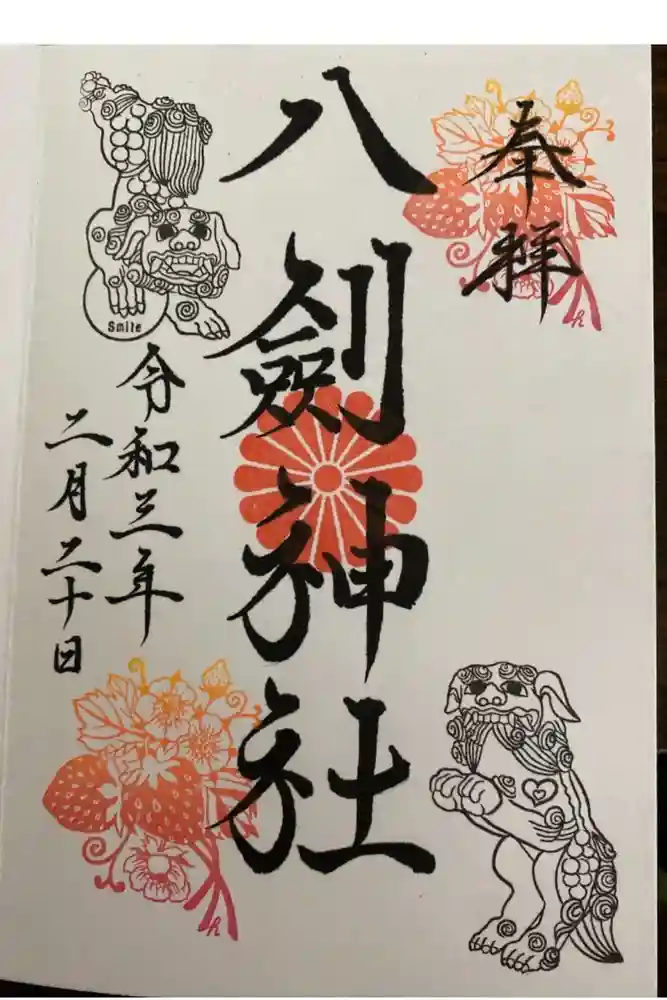 奉拜
八劔神社
令和三年
二月二十日
Smile
h
h